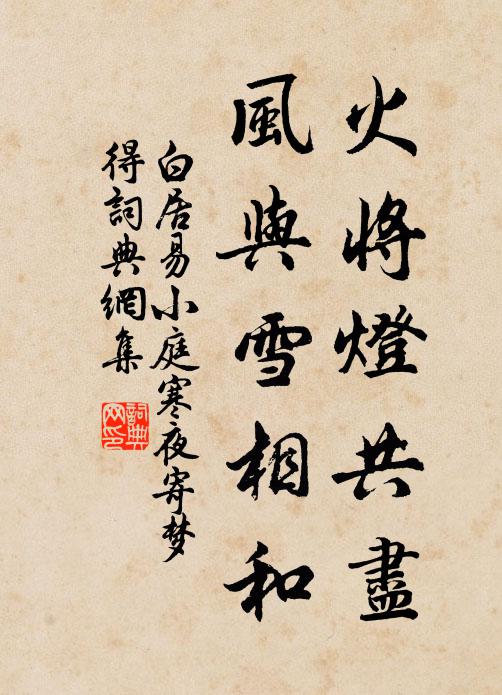 火將燈共盡
風與雪相和
白居易小庭寒夜寄梦
得詞典網集
詞典网印